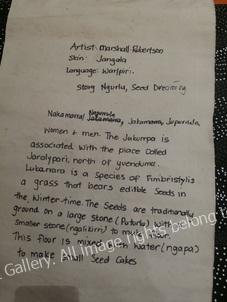 Artist: Marshall Robertson
Skin: Jangala
Language: Warlpiri.
Story: Ngurlu, Seed Dreaming
Nakamarra/ Jakamarra, Jupurrula,
Women & men. The Jukurrpa is
associated with the place called
Jaralypari, north of yuendumu.
Lukarrara is a Species of Fimbristylis
a grass that bears edible Seeds in
the Winter-time. The Seeds are traditionally
ground on a large stone with a
smaller stone (ngalikirri) to make flour.
This floor is mixed with water (ngapa)
to make small Seed Cakes
Gallery. All image rights belong to